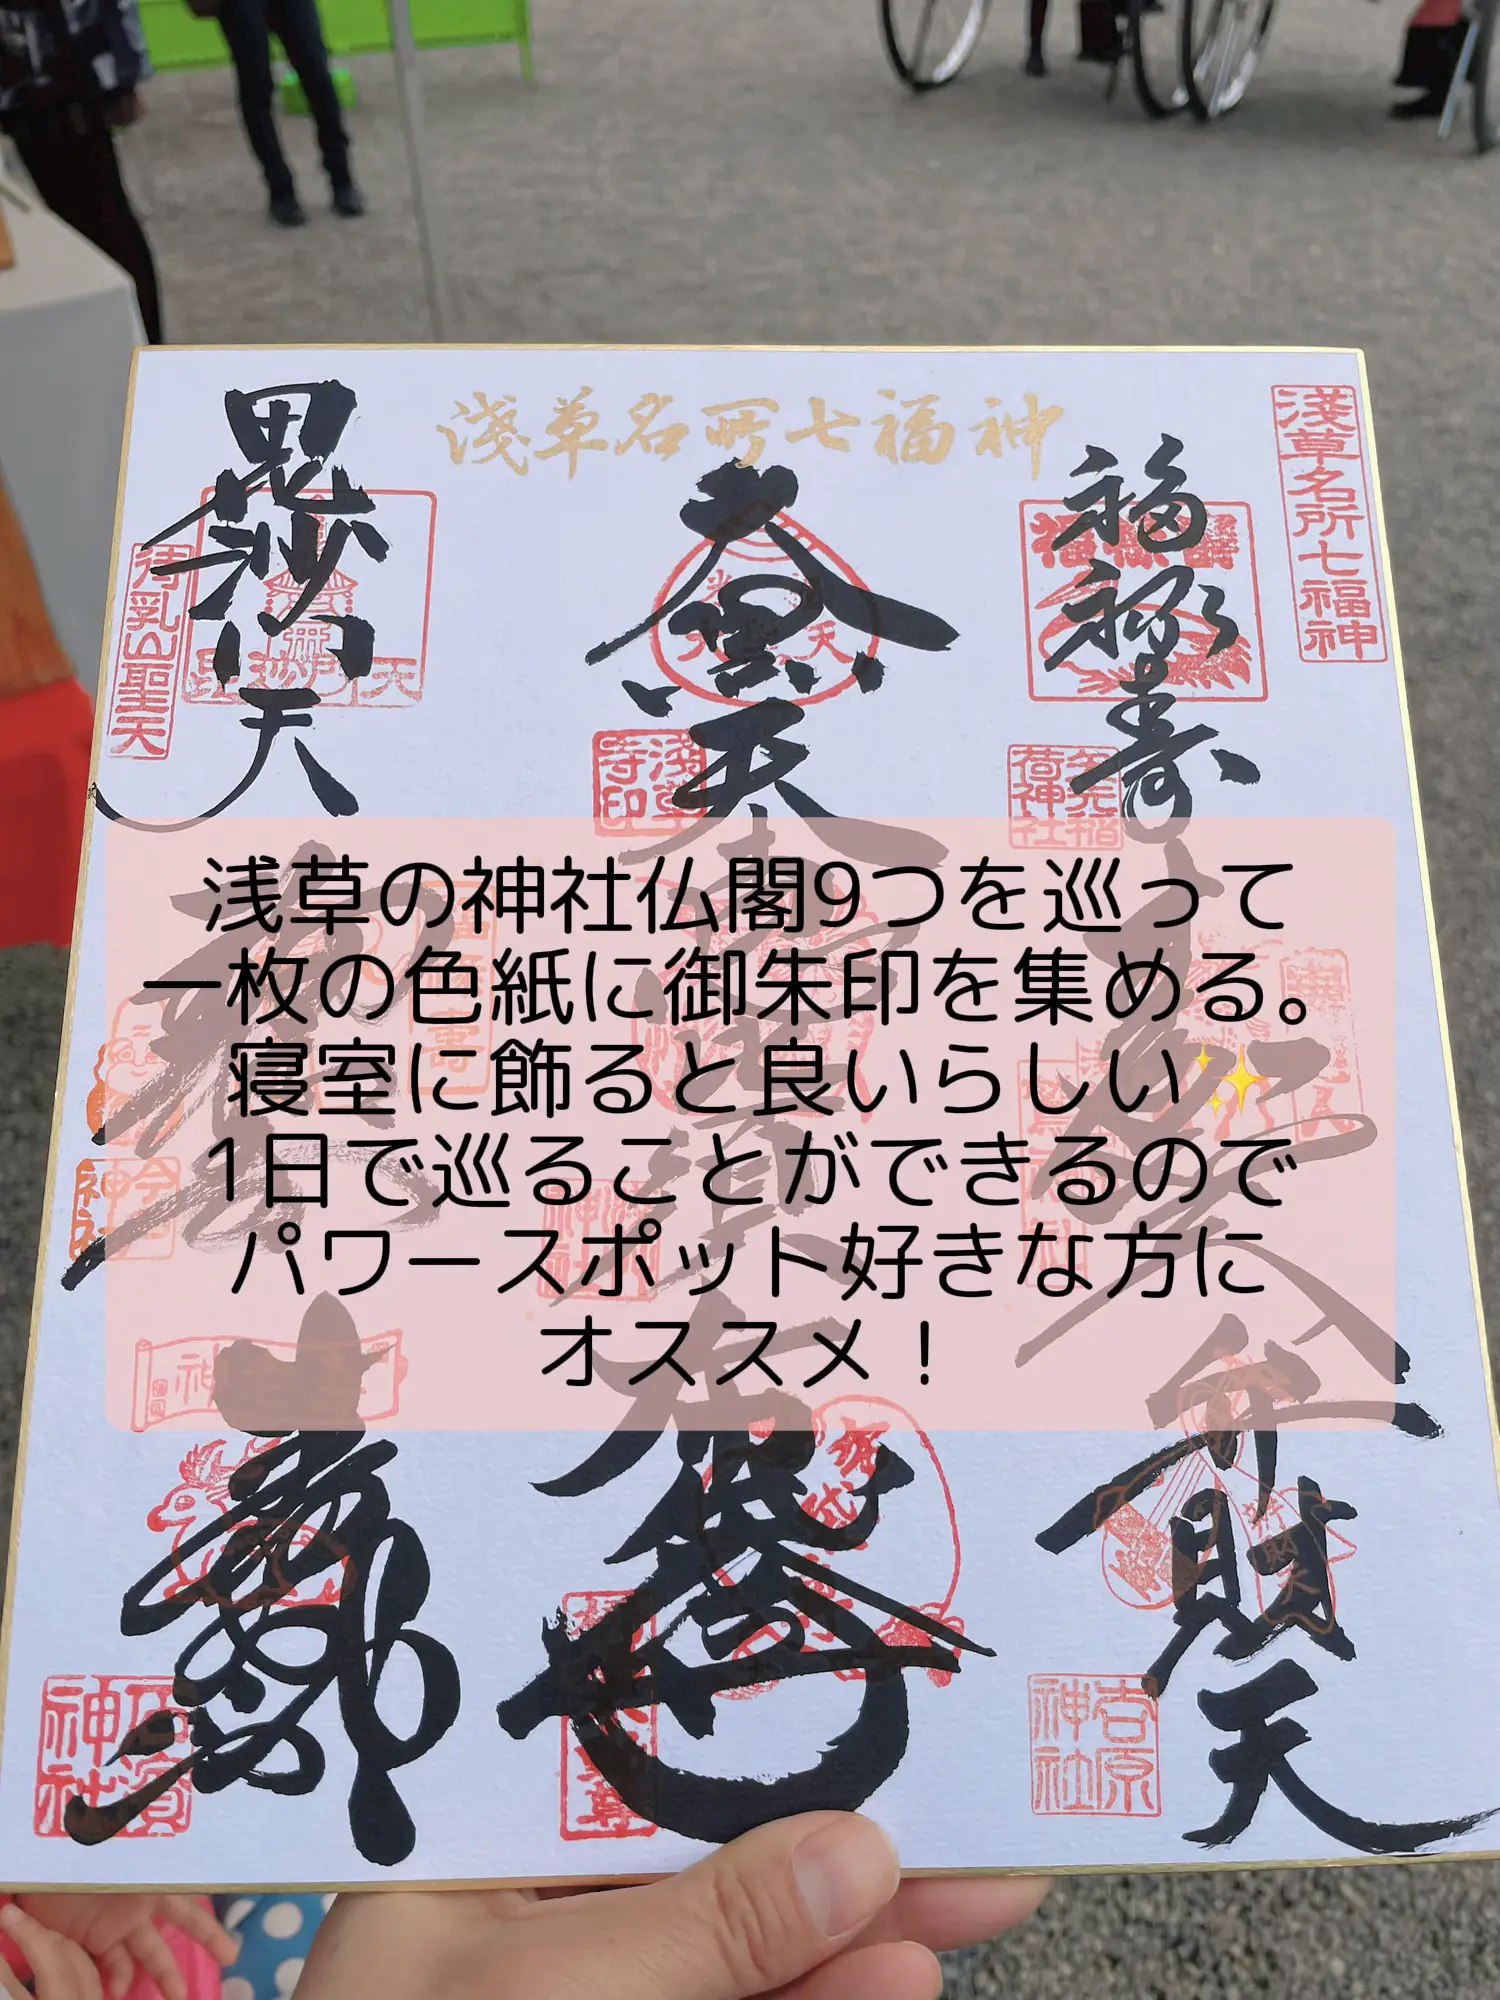 淺草名所七福神
淺草名所七福神
福禄寿
矢先稲
荷神社
大黒天
天
淺草
寺印
毘沙門天
毘沙門天
待乳山聖天
浅草の神社仏閣9つを巡って
一枚の色紙に御朱印を集める。
寝室に飾ると良いらしい✨
1日で巡ることができるので
パワースポット好きな方に
オススメ！
弁財天
吉原
神社
布袋尊
寿老神
石濱
神社